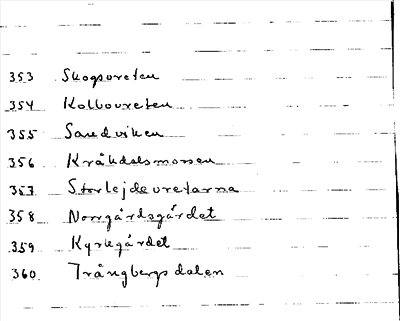 353 Skogsvreten
354 Kolbovreten
355 Sandviken
356 Kråkdalsmossen
357 Storlejdevretarna
358 Norrgårdsgärdet
359 Kyrkgärdet
360. Trångbergsdalen